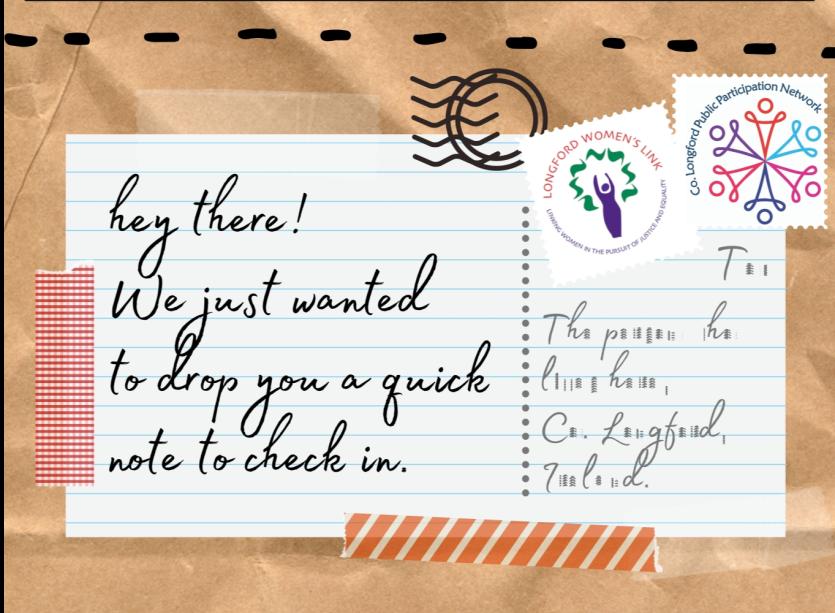 hey there!
We just wanted
to drop you a quick
note to check in.
LONGFORD WOMEN'S LINK
LINKING WOMEN IN THE PURSUIT OF JUSTICE AND EQUALITY
Co. Longford Public Participation Network
Co. Longford,